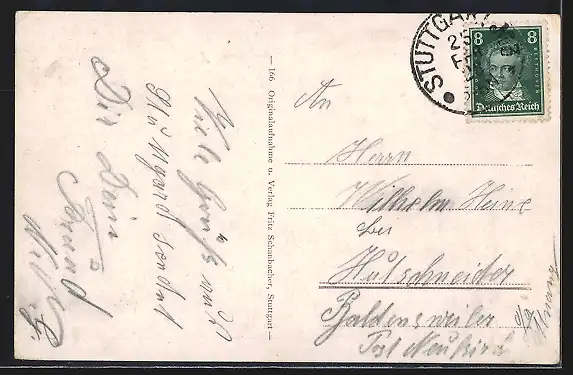 Viele Grüße aus
Stuttgart sendet
Dir Dein
Freund
Willi
— 166 Originalaufnahme u. Verlag Fritz Schaubacher, Stuttgart —
STUTTGART
8 8
Deutsches Reich
An
Herrn
Wilhelm Heine
bei
Hutschneider
Baldensweiler
Post Neukirch